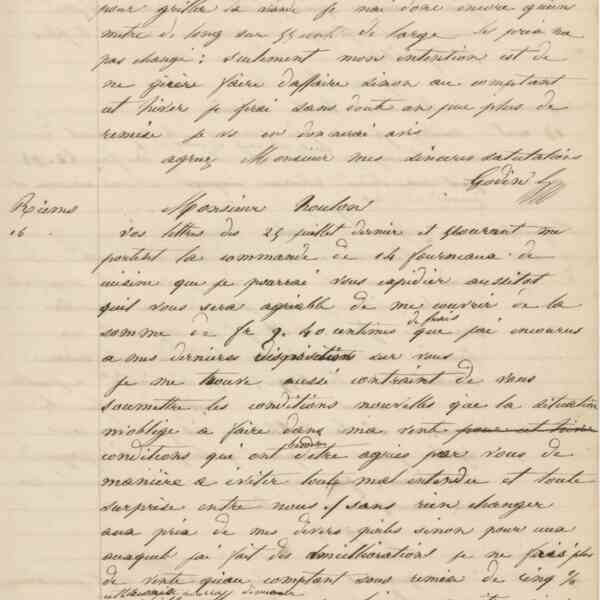 pour griller la viande je n'ai donc encore qu'un
mètre de long sur 55 cent de large les prix na
pas changé; seulement mon intention est de
ne guère faire d'affaire sinon au comptant
cet hiver je ferai sans doute un peu plus de
remise je vs en donnerai avis
agréez Monsieur mes sincères salutations
Godin
Reims
16
Monsieur Noulon
vos lettres des 25 juillet dernier et courant me
portent la commande de 14 fourneaux de
cuisine que je pourrai vous expédier aussitot
quil vous sera agréable de me couvrir de la
somme de fr 9. 40 centimes de frais que j'ai encourus
a mes dernieres disposition sur vous
je me trouve aussi contraint de vous
soumettre les conditions nouvelles que la situation
m'oblige a faire dans ma vente pour cet hiver
conditions qui ont besoin d'etre agrées par vous de
manière a éviter toute mal entendu et toute
surprise entre nous sans rien changer
aux prix de mes divers poêles sinon pour ceux
auxquels j'ai fait des améliorations je ne fais plus
de vente qu'au comptant sous remise de cinq %